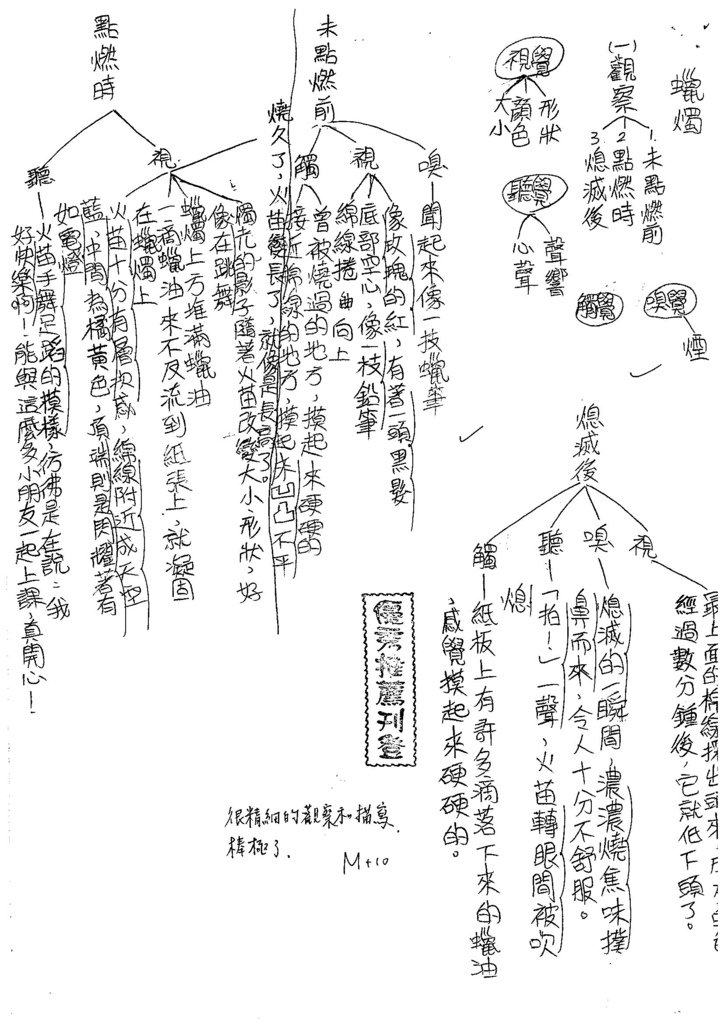 蠟燭
(一)觀察
1.未點燃前
2點燃時
3.熄滅後
視覺
形狀
顏色
大小
聽覺
聲響
心聲
觸覺
嗅覺
煙
未點燃前
嗅—聞起來像一技蠟筆
視
像玫瑰的紅,有著一頭黑髮
底部空心,像一枝鉛筆
綿線捲曲向上
觸
曾被燒過的地方,摸起來硬硬的
接近綿線的地方,摸起來凹凸不平
燒久了,火苗變長了,就像是長高了。
點燃時
視
燭光的影子隨著火苗改變大小、形狀,好
像在跳舞
蠟燭上方堆滿蠟油
一滴蠟油來不及流到紙張上,就凝固
在蠟燭上
火苗十分有層次感,綿線附近成天空
藍,中間為橘黃色,頂端則是閃耀著有
如電燈
聽—火苗手舞足蹈的模樣,彷彿是在說:我
好快樂啊!能與這麼多小朋友一起上課,真開心!
熄滅後
視
最上面的棉線探出頭來,
經過數分鐘後,它就低下頭了。
嗅—熄滅的一瞬間,濃濃燒焦味撲
鼻而來,令人十分不舒服。
聽—「拍!」一聲,火苗轉眼間被吹
熄
觸—紙板上有許多滴落下來的蠟油
,感覺摸起來硬硬的。
優秀推薦刊登
很精細的觀察和描寫,
棒極了.
M+10